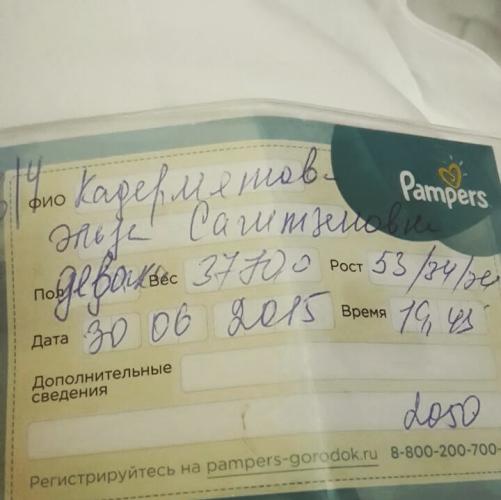 Pampers
ФИО Кадерметов
эльза Сагитжановн
Пол девоч Вес 3770,0 Рост 53/34/
Дата 30 06 2015 Время 19,45
Дополнительные
сведения
2050
Регистрируйтесь на pampers-gorodok.ru 8-800-200-700-